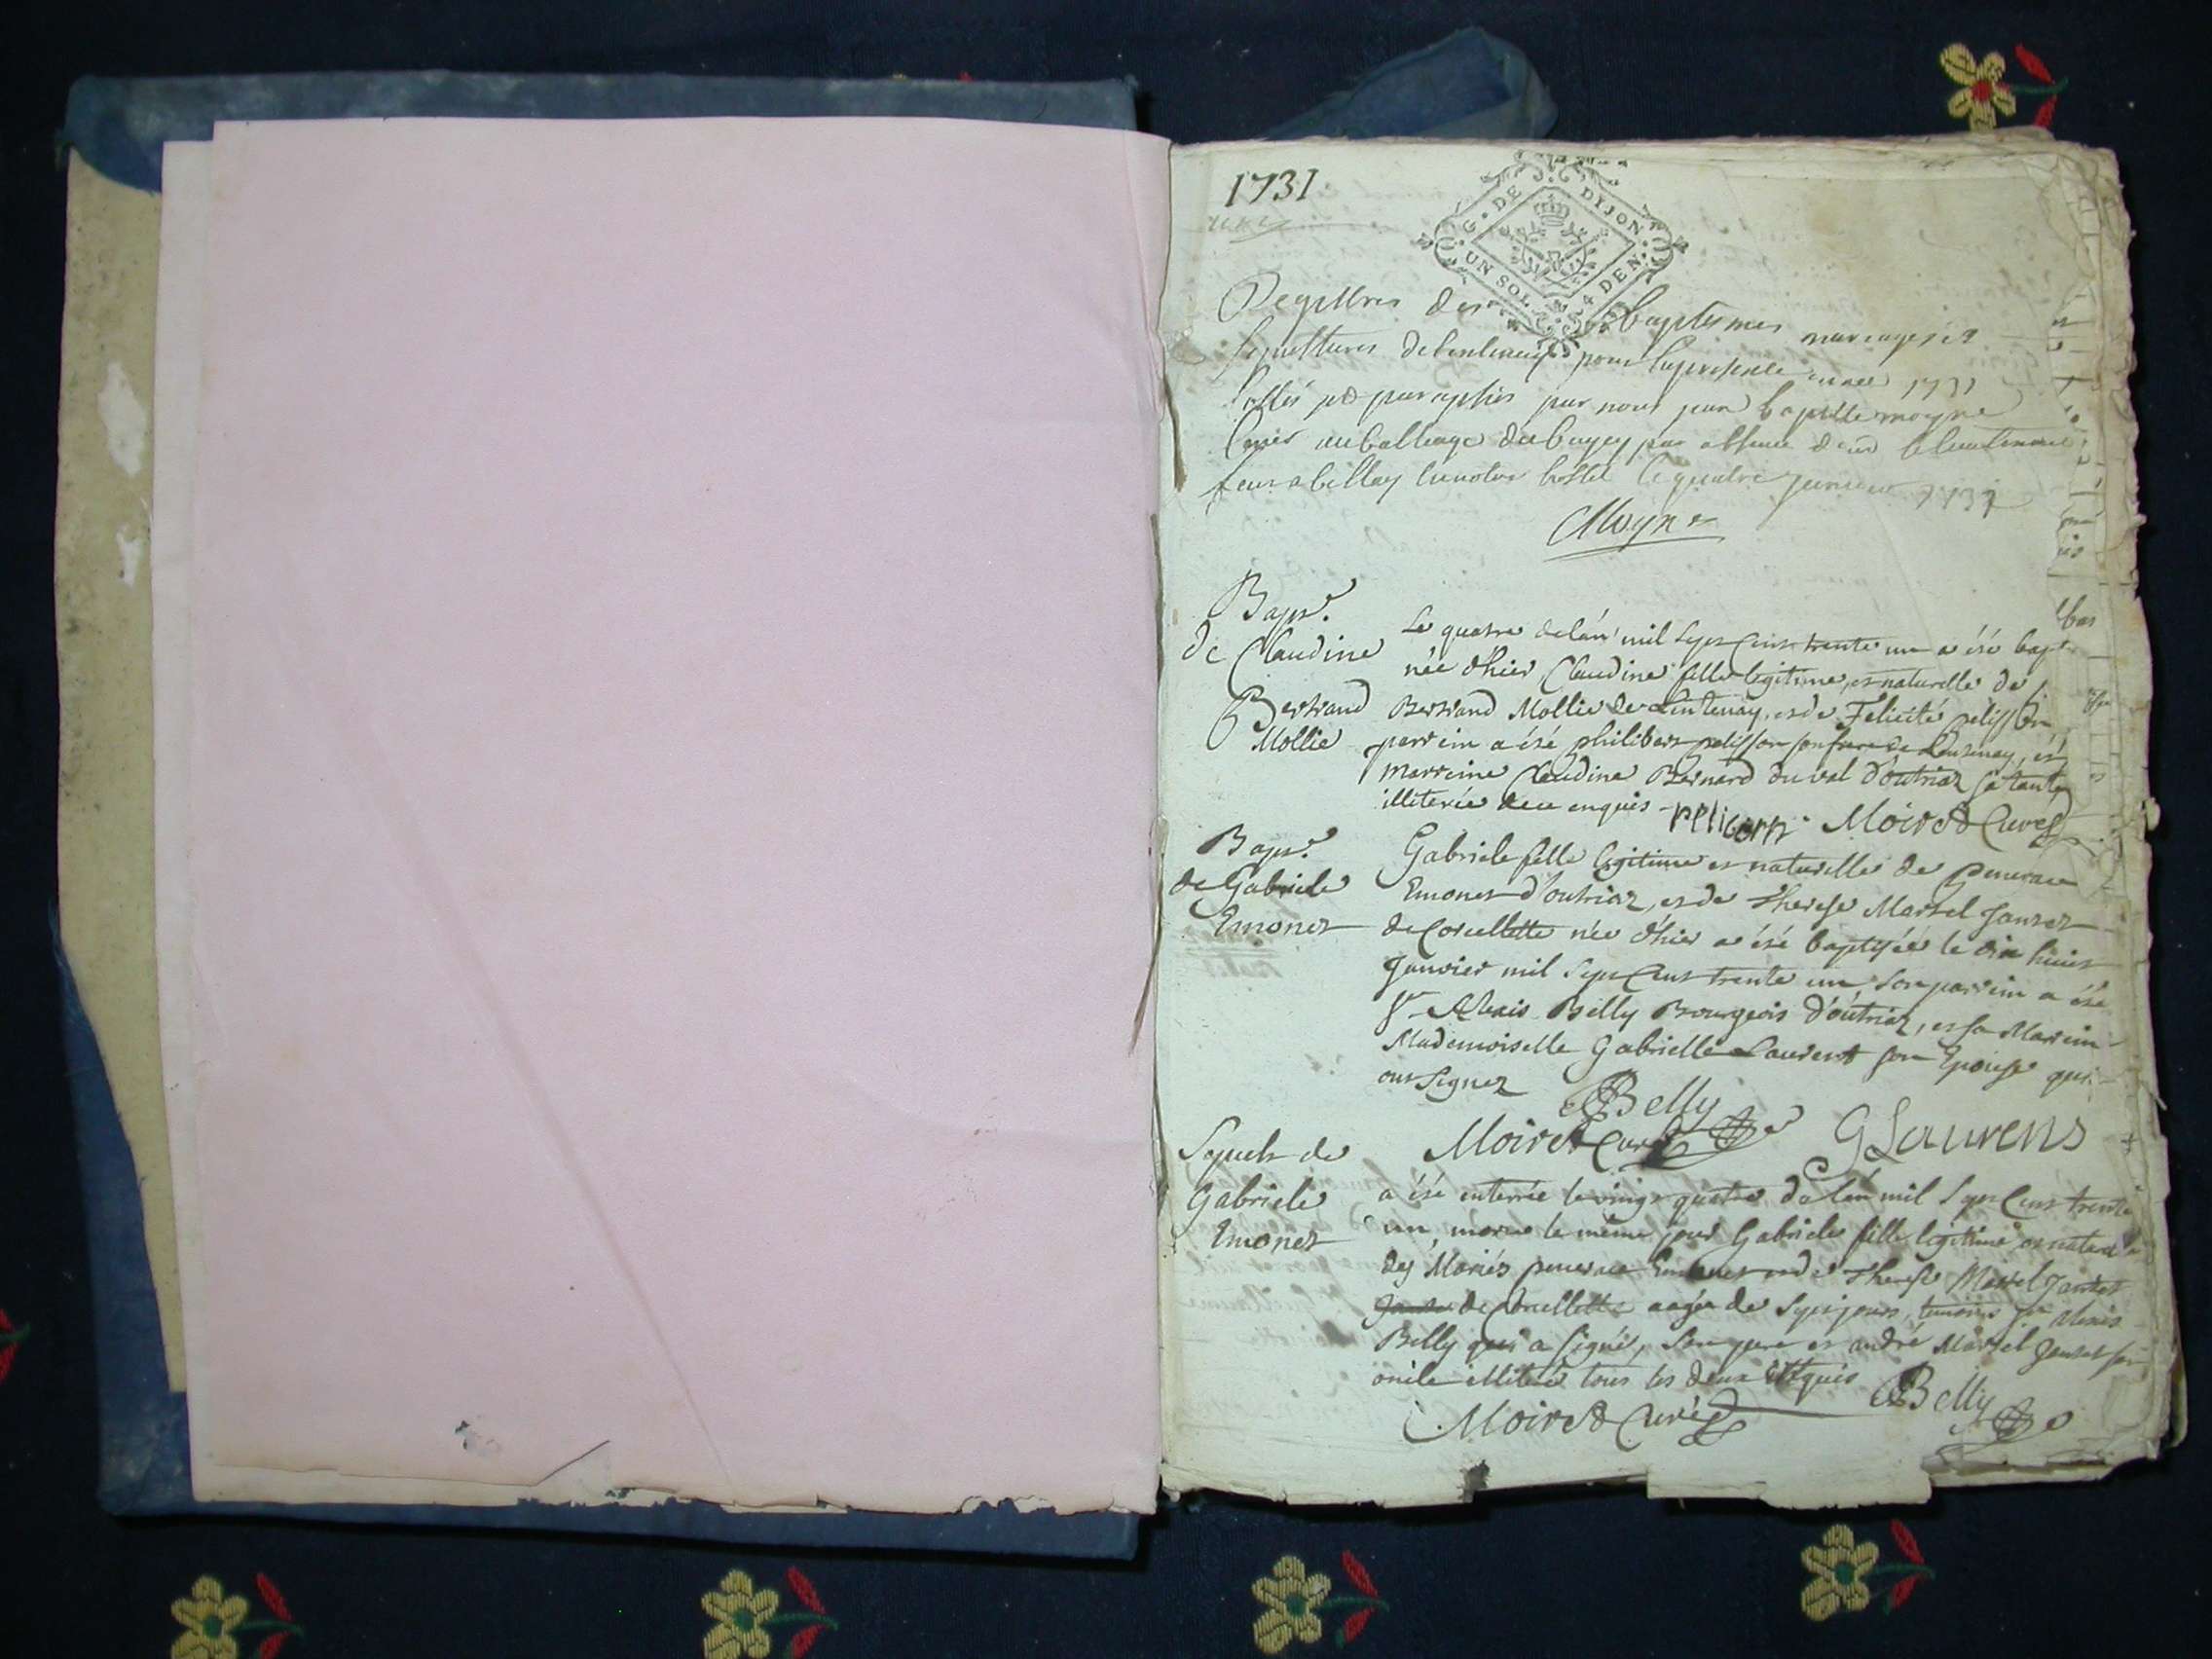 1731
G. DE DIJON
UN SOL 4 DEN.
Registres des baptesmes mariages et
sepultures de pour la presente année 1731
par nous jean baptiste moyne
au balliage du bugey par absence
le quatre janvier 1731
Moyne
Bapt.
de Claudine
Bertrand
Mollie
Le quatre de l'an mil sept cens trente un a été bapt
née d'hier, Claudine fille legitime, et naturelle de
Bertrand Mollie de Lentenay, et de Felicité pelisson
parrein a été philibert pelisson son frere de Lentenay, et
marreine Claudine Bernard du val d'outriaz sa tante
illiterée de ce enquis - pelicon Moiret Curé
Bapt.
de Gabriele
Emonet
Gabriele fille legitime et naturelle de
Emonet d'outriaz, et de Therese Martel Jantet
de Corcellette née d'hier a été baptisée le dix huict
Janvier mil sept cens trente un son parrein a été
Sr Alexis Belly Bourgeois d'outriaz, et sa Marrein
Mademoiselle Gabrielle Laurent son Epouse qui
ont signez Belly
Moiret Curé GLaurens
Sepult de
Gabriele
Emonet
a été enterrée le vingt quatre de l'an mil sept cens trente
un, morte le même jour Gabriele fille legitime et naturel
des Mariés Emonet et de Therese Martel Jantet
de Corcellette aagée de sept jours, temoins Sr Alexis
Belly qui a signé, son pere et andré Martel Jantet son
oncle illiteré tous les deux enquis Belly
Moiret Curé